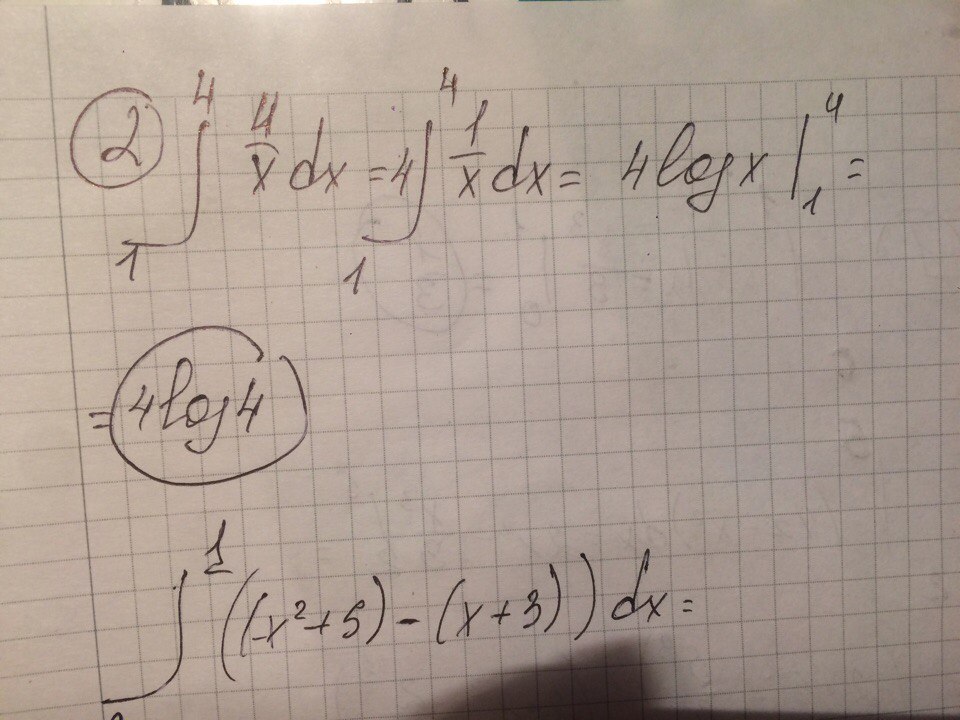 ② ∫₁⁴ 4/x dx = 4 ∫₁⁴ 1/x dx = 4 log x |₁⁴ =
= 4 log 4
∫¹ ((x²+5) - (x+3)) dx =